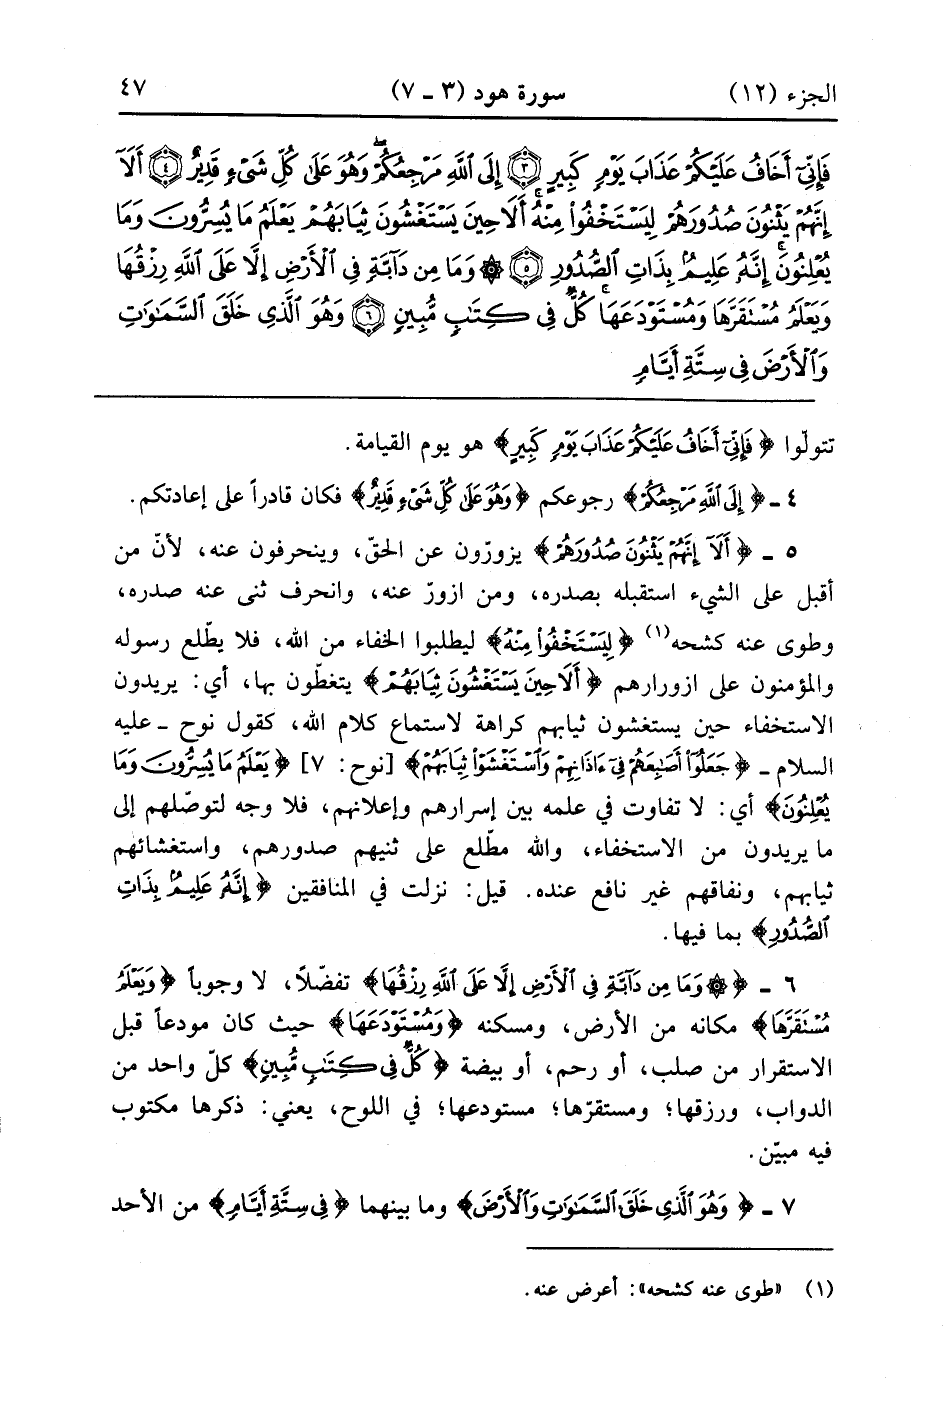 الجزء (١٢) سورة هود (٣ ـ ٧) ٤٧
فَإِنِّيٓ أَخَافُ عَلَيْكُمْ عَذَابَ يَوْمٍ كَبِيرٍ ﴿٣﴾ إِلَى ٱللَّهِ مَرْجِعُكُمْ ۖ وَهُوَ عَلَىٰ كُلِّ شَىْءٍ قَدِيرٌ ﴿٤﴾ أَلَآ
إِنَّهُمْ يَثْنُونَ صُدُورَهُمْ لِيَسْتَخْفُوا۟ مِنْهُ ۚ أَلَا حِينَ يَسْتَغْشُونَ ثِيَابَهُمْ يَعْلَمُ مَا يُسِرُّونَ وَمَا
يُعْلِنُونَ ۚ إِنَّهُۥ عَلِيمٌۢ بِذَاتِ ٱلصُّدُورِ ﴿٥﴾ ۞ وَمَا مِن دَآبَّةٍ فِى ٱلْأَرْضِ إِلَّا عَلَى ٱللَّهِ رِزْقُهَا
وَيَعْلَمُ مُسْتَقَرَّهَا وَمُسْتَوْدَعَهَا ۚ كُلٌّ فِى كِتَٰبٍ مُّبِينٍ ﴿٦﴾ وَهُوَ ٱلَّذِى خَلَقَ ٱلسَّمَٰوَٰتِ
وَٱلْأَرْضَ فِى سِتَّةِ أَيَّامٍ
تتولّوا ﴿فَإِنِّيٓ أَخَافُ عَلَيْكُمْ عَذَابَ يَوْمٍ كَبِيرٍ﴾ هو يوم القيامة.
٤ ـ ﴿إِلَى ٱللَّهِ مَرْجِعُكُمْ﴾ رجوعكم ﴿وَهُوَ عَلَىٰ كُلِّ شَىْءٍ قَدِيرٌ﴾ فكان قادراً على إعادتكم.
٥ ـ ﴿أَلَآ إِنَّهُمْ يَثْنُونَ صُدُورَهُمْ﴾ يزورّون عن الحقّ، وينحرفون عنه، لأنّ من
أقبل على الشيء استقبله بصدره، ومن ازورّ عنه، وانحرف ثنى عنه صدره،
وطوى عنه كشحه(١) ﴿لِيَسْتَخْفُوا۟ مِنْهُ﴾ ليطلبوا الخفاء من الله، فلا يطّلع رسوله
والمؤمنون على ازورارهم ﴿أَلَا حِينَ يَسْتَغْشُونَ ثِيَابَهُمْ﴾ يتغطّون بها، أي: يريدون
الاستخفاء حين يستغشون ثيابهم كراهة لاستماع كلام الله، كقول نوح ـ عليه
السلام ـ ﴿جَعَلُوٓا۟ أَصَٰبِعَهُمْ فِىٓ ءَاذَانِهِمْ وَٱسْتَغْشَوْا۟ ثِيَابَهُمْ﴾ [نوح: ٧] ﴿يَعْلَمُ مَا يُسِرُّونَ وَمَا
يُعْلِنُونَ﴾ أي: لا تفاوت في علمه بين إسرارهم وإعلانهم، فلا وجه لتوصّلهم إلى
ما يريدون من الاستخفاء، والله مطّلع على ثنيهم صدورهم، واستغشائهم
ثيابهم، ونفاقهم غير نافع عنده. قيل: نزلت في المنافقين ﴿إِنَّهُۥ عَلِيمٌۢ بِذَاتِ
ٱلصُّدُورِ﴾ بما فيها.
٦ ـ ﴿۞ وَمَا مِن دَآبَّةٍ فِى ٱلْأَرْضِ إِلَّا عَلَى ٱللَّهِ رِزْقُهَا﴾ تفضّلاً، لا وجوباً ﴿وَيَعْلَمُ
مُسْتَقَرَّهَا﴾ مكانه من الأرض، ومسكنه ﴿وَمُسْتَوْدَعَهَا﴾ حيث كان مودعاً قبل
الاستقرار من صلب، أو رحم، أو بيضة ﴿كُلٌّ فِى كِتَٰبٍ مُّبِينٍ﴾ كلّ واحد من
الدواب، ورزقها؛ ومستقرّها؛ مستودعها؛ في اللوح، يعني: ذكرها مكتوب
فيه مبيّن.
٧ ـ ﴿وَهُوَ ٱلَّذِى خَلَقَ ٱلسَّمَٰوَٰتِ وَٱلْأَرْضَ﴾ وما بينهما ﴿فِى سِتَّةِ أَيَّامٍ﴾ من الأحد
(١) «طوى عنه كشحه»: أعرض عنه.